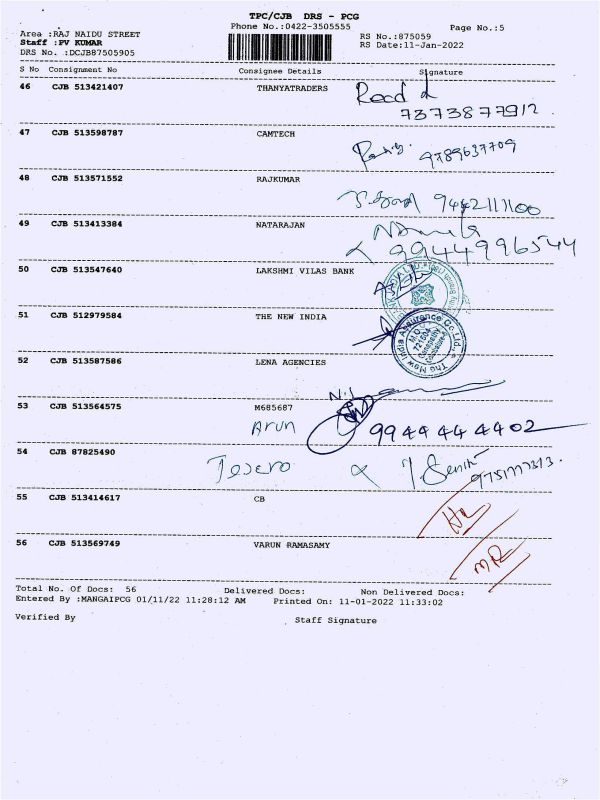 TPC/CJB DRS - PCG
Phone No.:0422-3505555
Page No.:5
Area :RAJ NAIDU STREET
Staff :PV KUMAR
DRS No. :DCJB87505905
RS No.:875059
RS Date:11-Jan-2022
S No Consignment No Consignee Details Signature
46 CJB 513421407 THANYATRADERS
7373877912
47 CJB 513598787 CAMTECH
9789637709
48 CJB 513571552 RAJKUMAR
9442111100
49 CJB 513413384 NATARAJAN
9944996544
50 CJB 513547640 LAKSHMI VILAS BANK
51 CJB 512979584 THE NEW INDIA
The New India Assurance Co. Ltd.
52 CJB 513587586 LENA AGENCIES
53 CJB 513564575 M685687
Arun 9944444402
54 CJB 87825490
55 CJB 513414617 CB
56 CJB 513569749 VARUN RAMASAMY
Total No. Of Docs: 56 Delivered Docs: Non Delivered Docs:
Entered By :MANGAIPCG 01/11/22 11:28:12 AM Printed On: 11-01-2022 11:33:02
Verified By Staff Signature